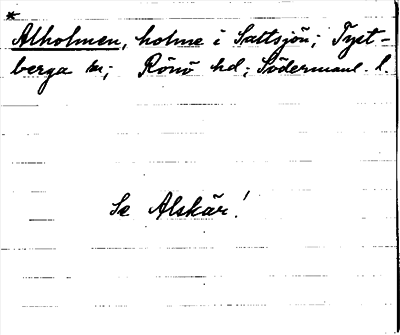 *
Alholmen, holme i Saltsjön; Tyst-
berga sn; Rönö hd; Södermanl. l.
Se Alskär!